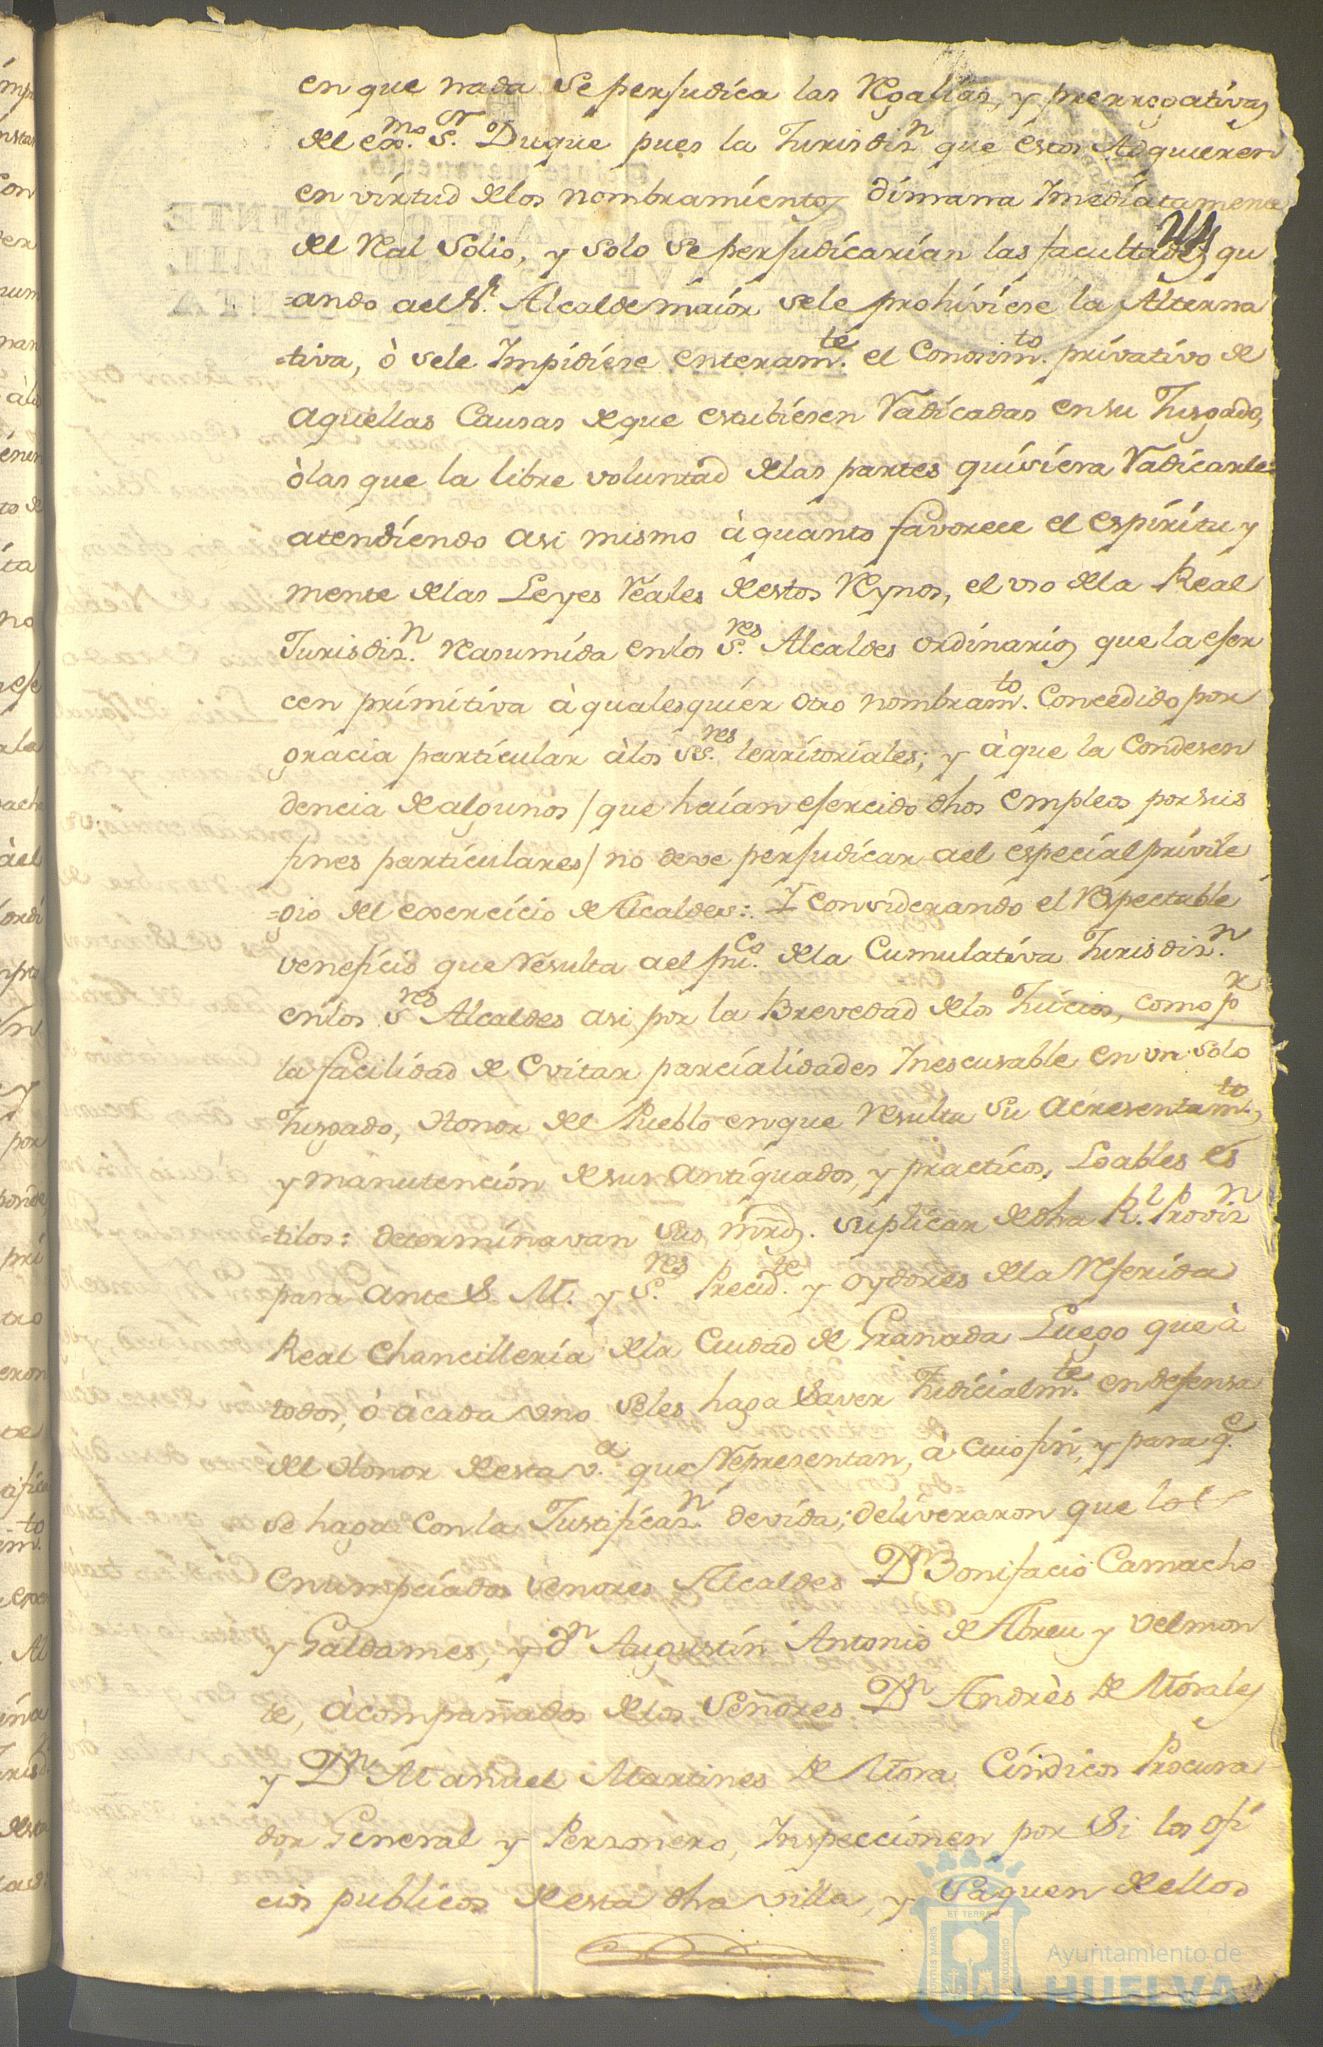 en que nada Se perjudica las Regalias, y prerrogativas
del ex.mo S.or Duque pues la Jurisdiz.n que estos Adquieren
en virtud de los nombramientos dimana Inmediatamente
del Real Solio, y Solo Se perjudicarian las facultades qu
=ando a el S.r Alcalde maior Se le prohiviese la Alterna
=tiva, ò Se le Impidiese enteram.te el Conosim.to privativo de
aquellas Causas de que estubiesen Radicadas en su Jusgado,
ò las que la libre voluntad de las partes quisiera Radicarle:
atendiendo asi mismo à quanto favorece el espiritu y
mente de las Leyes Reales de estos Reynos, el uso de la Real
Jurisdiz.n Rasumida en los S.res Alcaldes ordinarios que la ejer
cen primitiva à qualesquier otro nombram.to Concedido por
gracia particular à los SS.res territoriales; y à que la Condesen
dencia de algunos / que haian ejercido dhos empleos por sus
fines particulares / no deve perjudicar a el especial privile
=gio del exercicio de Alcaldes: Y Considerando el Respectable
veneficio que Resulta a el pu.co de la Cumulativa Jurisdiz.n
en los S.res Alcaldes asi por la Brevedad de los Juicios, como p.r
la facilidad de evitar parcialidades Inescusable en un Solo
Jusgado, Honor del Pueblo en que Resulta Su acresentam.to,
y manutencion de sus antiguados, y practicos, Loables es
=tilos: determinavan Sus mrds. Suplicar de dha R.l Proviz.n
para ante S. M. y S.res Precid.te y oydores de la Referida
Real Chancilleria de la Ciudad de Granada Luego que à
todos, ó à cada uno Se les haga Saver Judicialm.te en defensa
del Honor de esta v.a que Representan, à cuio fin, y para q.e
se haga con la Justificaz.n devida; deliveraron que los
enumpciados Senores Alcaldes D.n Bonifacio Camacho
y Galdames, y d.n Augustin Antonio de Abreu y Velmon
te, àcompañados de los Señores D.n Andrès de Morales
y D.n Manuel Martines de Mora Cindicos Procura
dor General y Personero, Inspeccionen por Si los ofi
cios publicos de esta dha villa, y Saquen de ellos
Ayuntamiento de
HUELVA